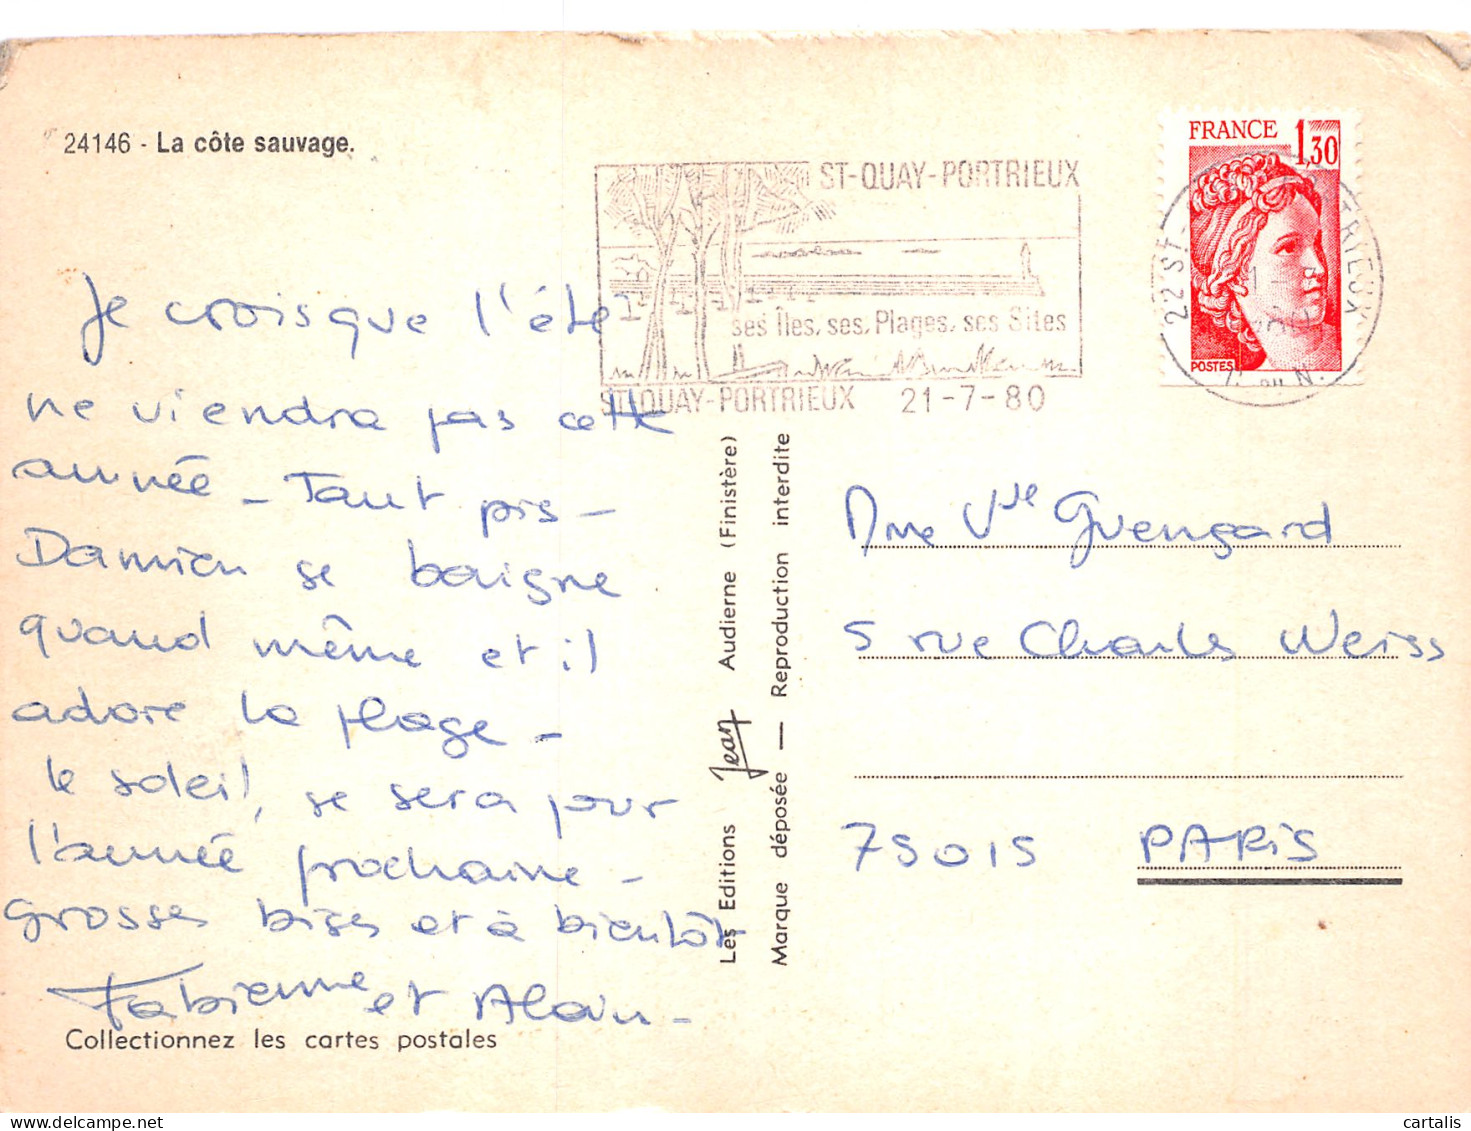 24146 - La côte sauvage.
ST-QUAY-PORTRIEUX
ses Îles, ses Plages, ses Sites
ST-QUAY-PORTRIEUX 21-7-80
FRANCE 1,30
POSTES
22 ST- TRIEUX
Je crois que l'été
ne viendra pas cette
année - Tant pis -
Damien se baigne
quand même et il
adore la plage -
le soleil, se sera pour
l'année prochaine -
grosses bises et à bientôt
Fabienne et Alain -
Collectionnez les cartes postales
Les Editions Jean Audierne (Finistère)
Marque déposée — Reproduction interdite
Mme Vve Guengard
5 rue Charles Weiss
75015 PARIS
cartalis